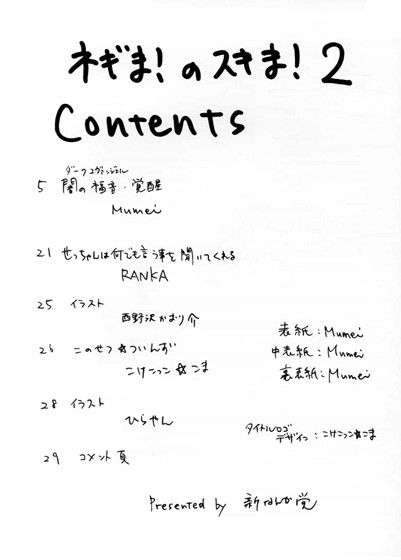 ネギま!のスキま!2
Contents
ダークエヴァンジェル
5 闇の福音・覚醒
Mumei
21 せっちゃんは何でも言う事を聞いてくれる
RANKA
25 イラスト
西野沢かおり介
26 このせつ☆ついんず
こけこっこ☆こま
28 イラスト
ひらやん
29 コメント頁
表紙:Mumei
中表紙:Mumei
裏表紙:Mumei
タイトルロゴ
デザイン:こけこっこ☆こま
Presented by 新なんか党